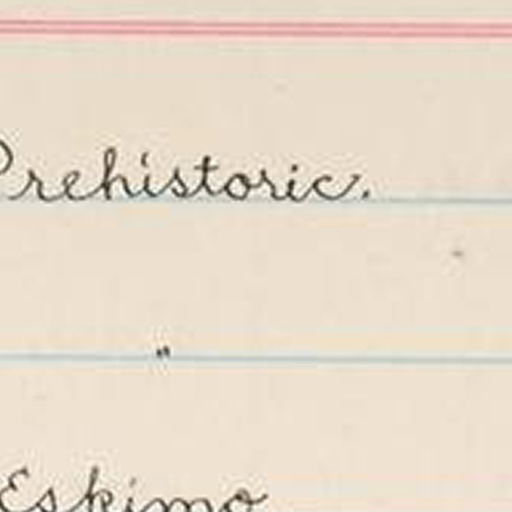 Prehistoric.
"
Eskimo